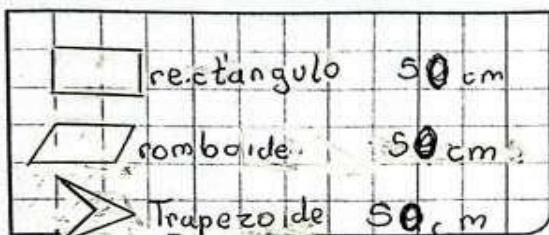 rectángulo 50 cm
romboide 50 cm
Trapezoide 50 cm